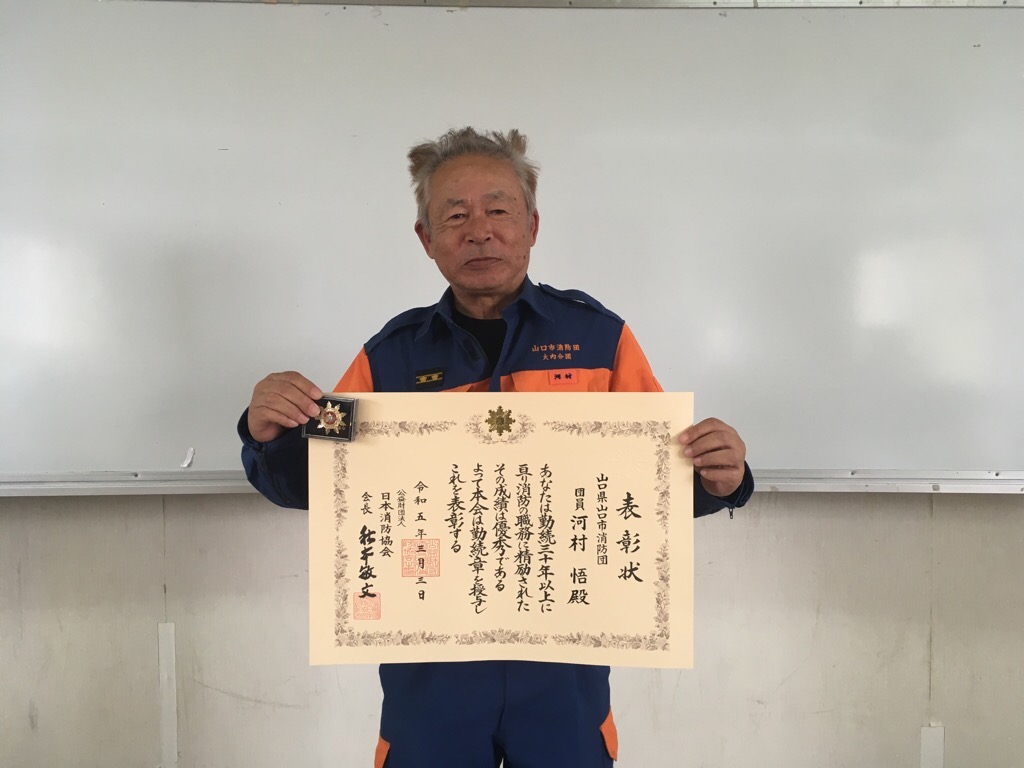 山口市消防団
大内分団
河村
表彰状
山口県山口市消防団
団員 河村 悟 殿
あなたは勤続三十年以上に
亘り消防の職務に精励された
その成績は優秀である
よって本会は勤続章を授与し
これを表彰する
令和五年三月三日
公益財団法人
日本消防協会
会長 秋本敏文